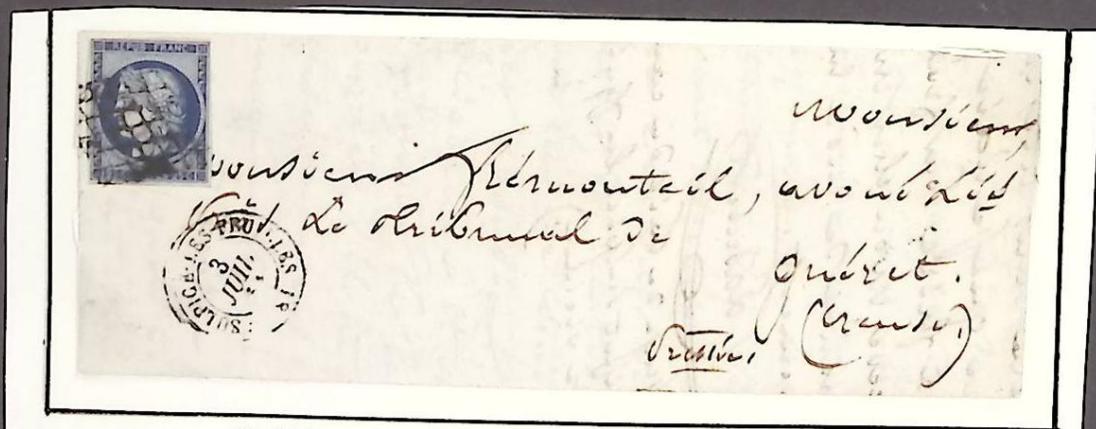 REPUB FRANC
Monsieur,
Monsieur Trémouteil, avoué
Le Tribunal de
Guéret.
(Creuse.)
Pressée.
SULPICE-LES-FEUILLES
3
JUIL